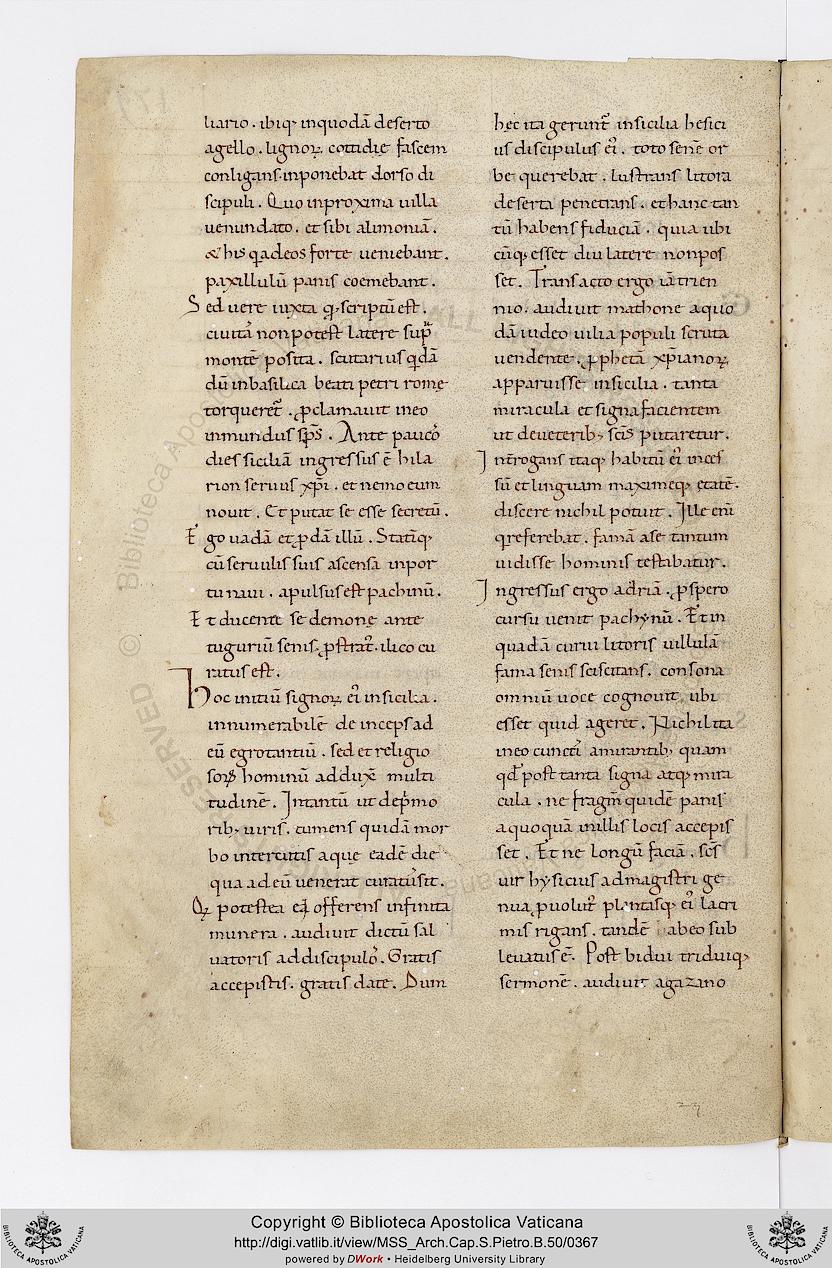 liario . ibiq; inquodã deserto
agello . lignoꝝ cottidie fascem
conligans . inponebat dorso di
scipuli . Quo inproxima uilla
uenundato . et sibi alimoniã .
& his q̃ adeos forte ueniebant .
paxillulũ panis coemebant .
Sed uere iuxta q; scriptũ est .
ciuitas non potest latere supra
montẽ posita . scutarius q̃dã
dũ inbasilica beati petri rome
torqueret̃ . ꝓclamauit ineo
inmundus sp̃s . Ante paucos
dies siciliã ingressus ẽ hila
rion seruus xp̃i . et nemo eum
nouit . Et putat se esse secretũ .
Ego uadã et ꝓdã illũ . Statiq;
cũ seruulis suis ascensa inpor
tu naui . apulsus est pachinũ .
Et ducente se demone ante
tuguriũ senis . ꝓstrat̃ . ilico cu
ratus est .
Hoc initiũ signoꝝ ei᾽ insicilia .
innumerabilẽ deinceps ad
eũ egrotantiũ . sed et religio
sorꝝ hominũ adduxẽ multi
tudinẽ . Intantũ ut deṕmo
rib; uiris . tumens quidã mor
bo intercutis aque eadẽ die
qua ad eũ uenerat curatus sit .
Qꝫ postea ei offerens infinita
munera . audiuit dictũ sal
uatoris ad discipulos . Gratis
accepistis . gratis date . Dum
hęc ita gerunt̃ insicilia hesici
us discipulus ei᾽ . toto senẽ or
be querebat . lustrans litora
deserta penetrans . et hanc tan
tũ habens fiduciã . quia ubi
cũq; esset diu latere non pos
set . Transacto ergo iã trien
nio . audiuit mathone aquo
dã iudeo uilia populi scruta
uendente . ꝓphetã xp̃ianoꝝ
apparuisse insicilia . tanta
miracula et signa facientem
ut deueterib; sc̃is putaretur .
Inẽrrogans itaq; habitũ ei᾽ inces
sũ et linguam maximeq; etatẽ .
discere nichil potuit . Ille eni
q̃ referebat . famã ase tantum
uidisse hominis testabatur .
Ingressus ergo adriã . ꝓspero
cursu uenit pachynũ . Et in
quadã curui litoris uillulã
fama senis sciscitans . consona
omniũ uoce cognouit . ubi
esset quid ageret . Nichil ita
ineo cuncti amirantib; quam
qd̃ post tanta signa atq; mira
cula . ne fragm̃ quidẽ panis
a quoquã inillis locis accepis
set . Et ne longũ faciã . sc̃s
uir hysicius ad magistri ge
nua ꝓuolut᾽ plantasq; ei᾽ lacri
mis rigans . tandẽ abeo sub
leuatus ẽ . Post bidui triduiq;
sermonẽ . audiuit agazano
Copyright © Biblioteca Apostolica Vaticana
http://digi.vatlib.it/view/MSS_Arch.Cap.S.Pietro.B.50/0367
powered by DWork • Heidelberg University Library